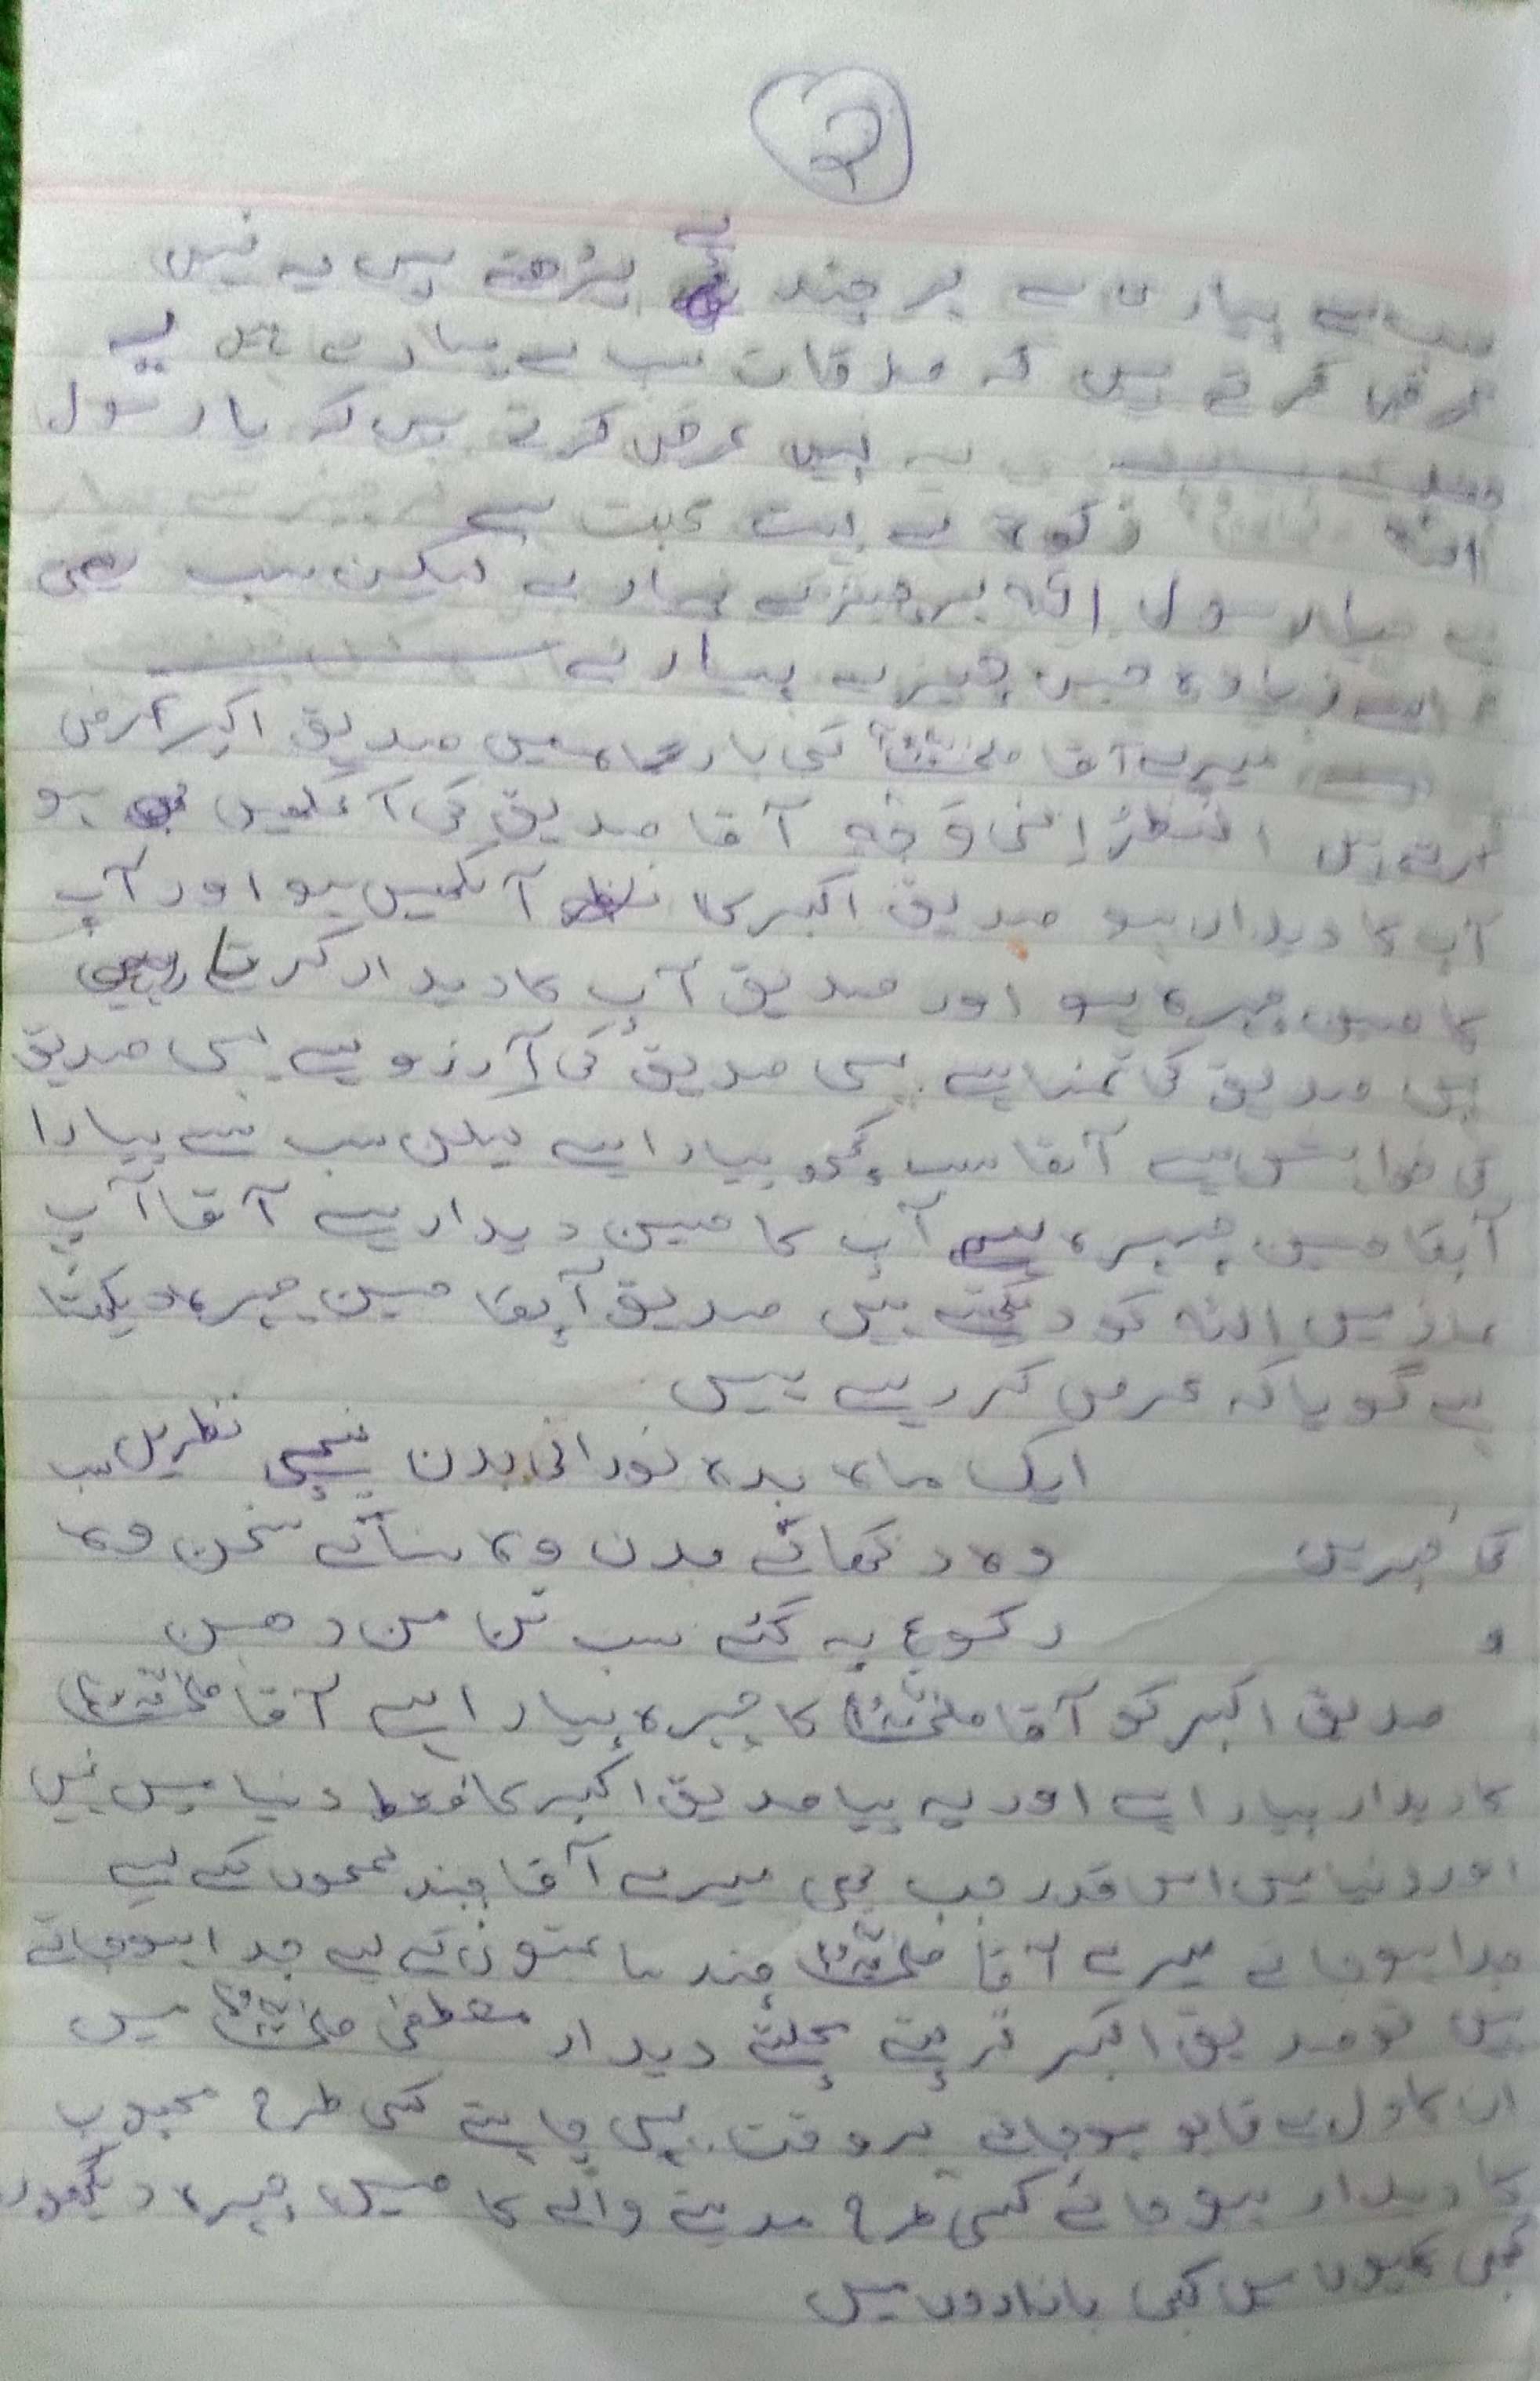 2
سب سے پیاری ہے ہر چند پڑھتے ہیں یہ نہیں
عرض کرتے ہیں کہ صدقات سب سے پیارے ہیں یے
یہ نہیں عرض کرتے ہیں کہ یا رسول
اللہ زکوۃ سے بہت محبت ہے
یا رسول اللہ ہر چیز سے پیار ہے لیکن سب
زیادہ جس چیز سے پیار ہے
میرے آقا صلی اللہ کی بارگاہ میں صدیق اکبر عرض
کرتے ہیں انظرُ اِلٰی وَجہِ آقا صدیق کی آنکھیں ہو
آپ کا دیدار ہو صدیق اکبر کا آنکھیں ہو اور آپ
کا حسین چہرہ ہو اور صدیق آپ کا دیدار کرتا
بس صدیق کی تمنا ہے یہی صدیق کی آرزو ہے یہی صدیق
کی خواہش ہے آقا سب کچھ پیارا ہے لیکن سب سے پیارا
آپکا حسین چہرہ ہے آپ کا حسین دیدار ہے آقا آپ
نماز میں اللہ کو دیکھتے ہیں صدیق آپکا حسین چہرہ دیکھتا
ہے گویا کہ عرض کر رہے ہیں
ایک ماہ بدہ نورانی بدن نیچی نظریں سب
کی خبریں وہ دکھائے مدن وہ سنائے سخن وہ
و رکوع پہ گئے سب تن من دھن
صدیق اکبر کو آقا صلی اللہ کا چہرہ پیارا ہے آقا صلی اللہ
کا دیدار پیارا ہے اور یہ پیا صدیق اکبر کا فقط دنیا میں نہیں
اور دنیا میں اس قدر جب بھی میرے آقا چند لمحوں کے لیے
جدا ہو جاتے میرے آقا صلی اللہ چند ساعتوں کے لیے جدا ہو جاتے
ہیں تو صدیق اکبر تڑپتے مچلتے دیدار مصطفی صلی اللہ میں
ان کا دل بے قابو ہو جاتے ہر وقت یہی چاہتے کسی طرح محبوب
کا دیدار ہو جائے کسی طرح مدینے والے کا حسین چہرہ دیکھوں
کبھی گلیوں میں کبھی بازاروں میں